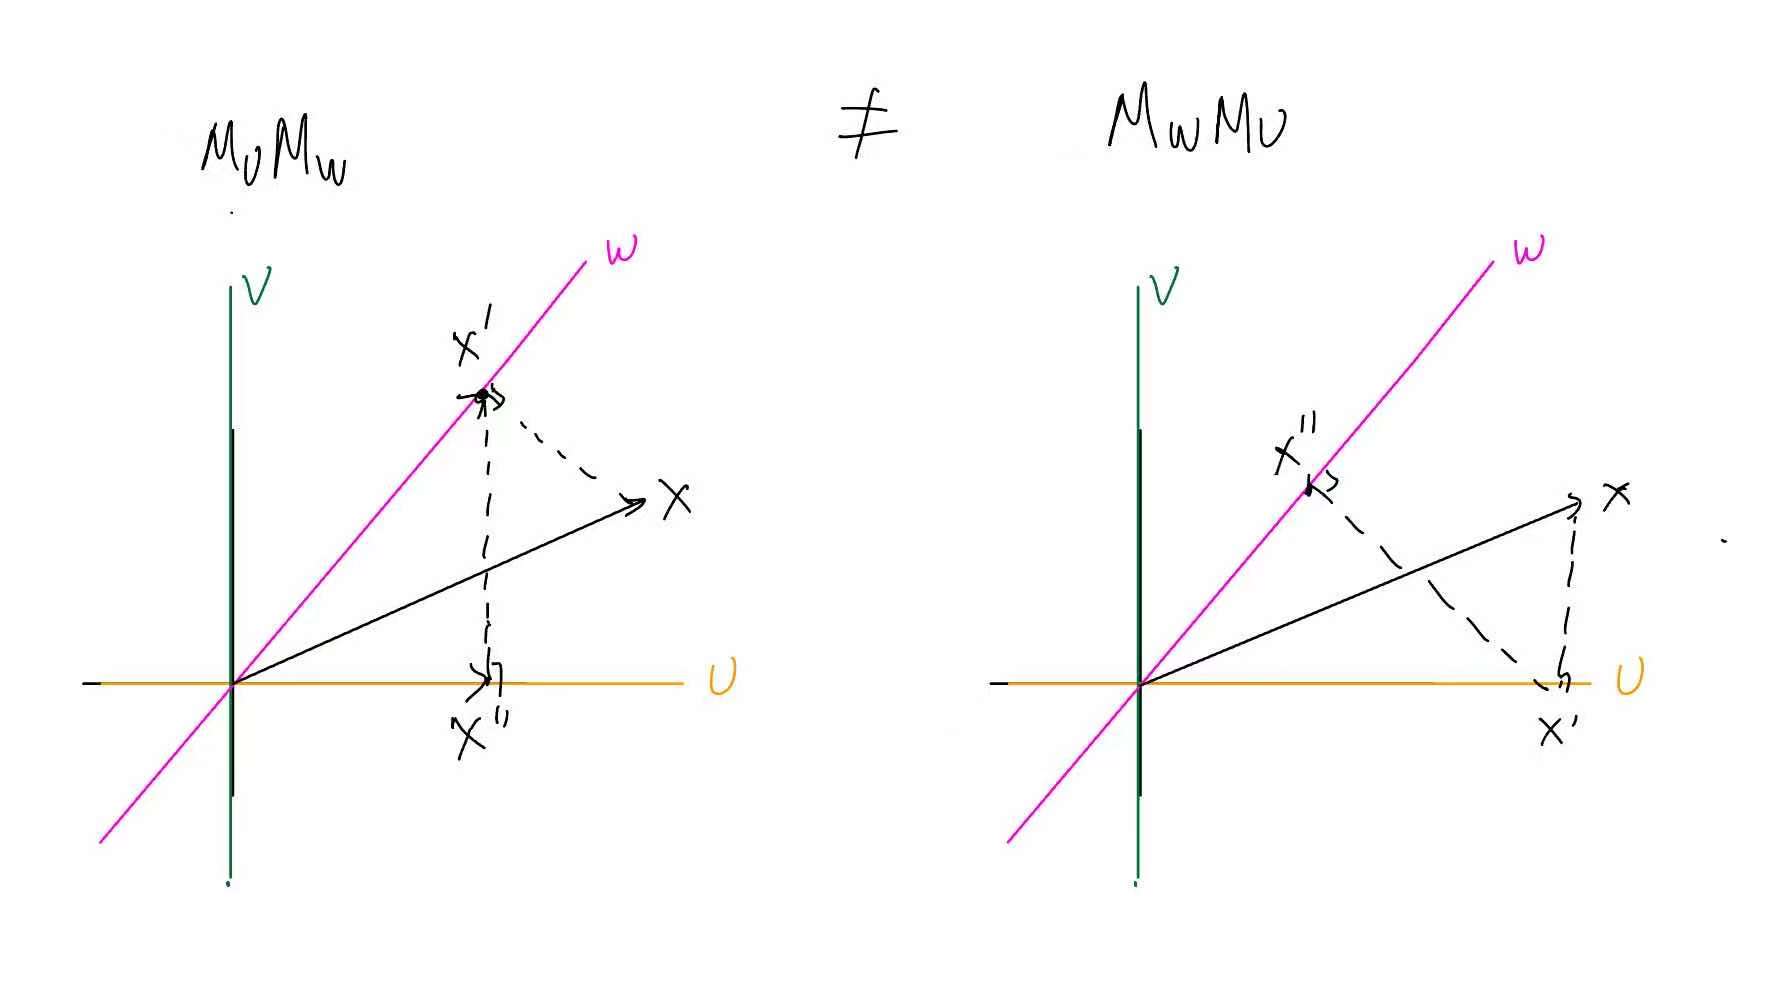 MᴜMw ≠ MwMᴜ
V W
X'
X
U
X"
V W
X"
X
U
X'